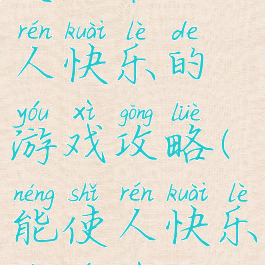 rén kuài lè de
人快乐的
yóu xì gōng lüè
游戏攻略(
néng shǐ rén kuài lè
能使人快乐